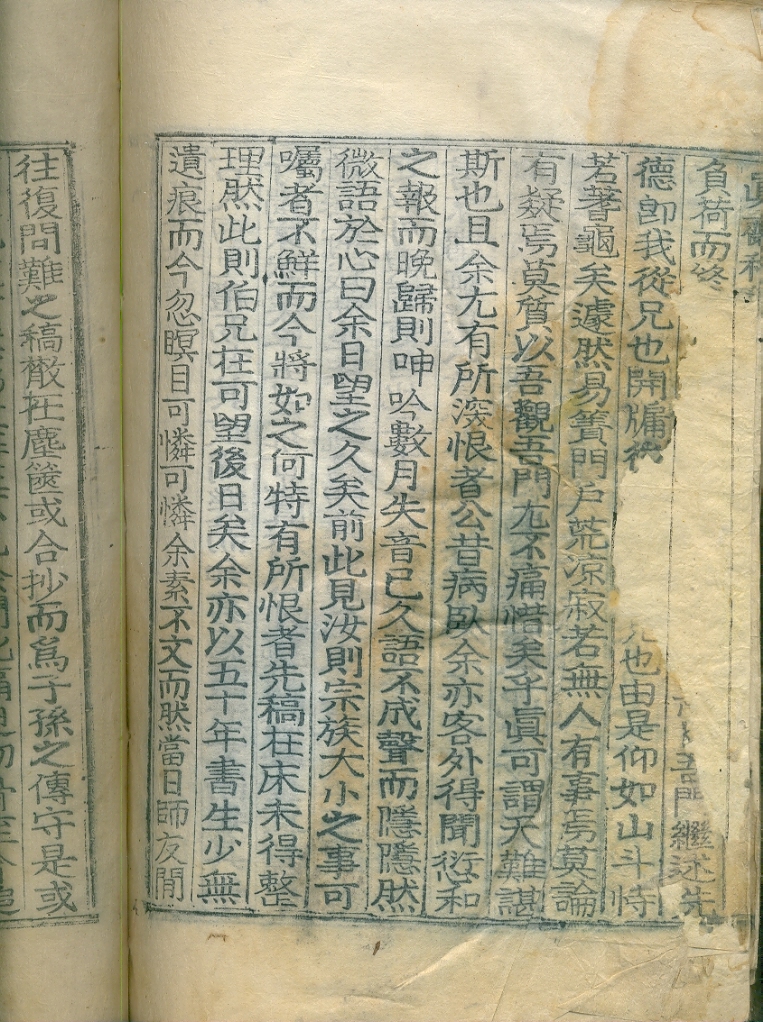 負荷而終 吾門繼述先
德卽我從兄也開牖後 兄也由是仰如山斗恃
若蓍龜矣遽然易簀門戶荒凉寂若無人有事焉莫論
有疑焉莫質以吾觀吾門尤不痛惜矣乎眞可謂天難諶
斯也且余尤有所深恨者公昔病臥余亦客外得聞愆和
之報而晩歸則呻吟數月失音已久語不成聲而隱隱然
微語於心曰余日望之久矣前此見汝則宗族大小之事可
囑者不鮮而今將如之何特有所恨者先稿在床未得整
理然此則伯兄在可望後日矣余亦以五十年書生少無
遺痕而今忽瞑目可憐可憐余素不文而然當日師友間
往復問難之稿散在塵篋或合抄而爲子孫之傳守是或